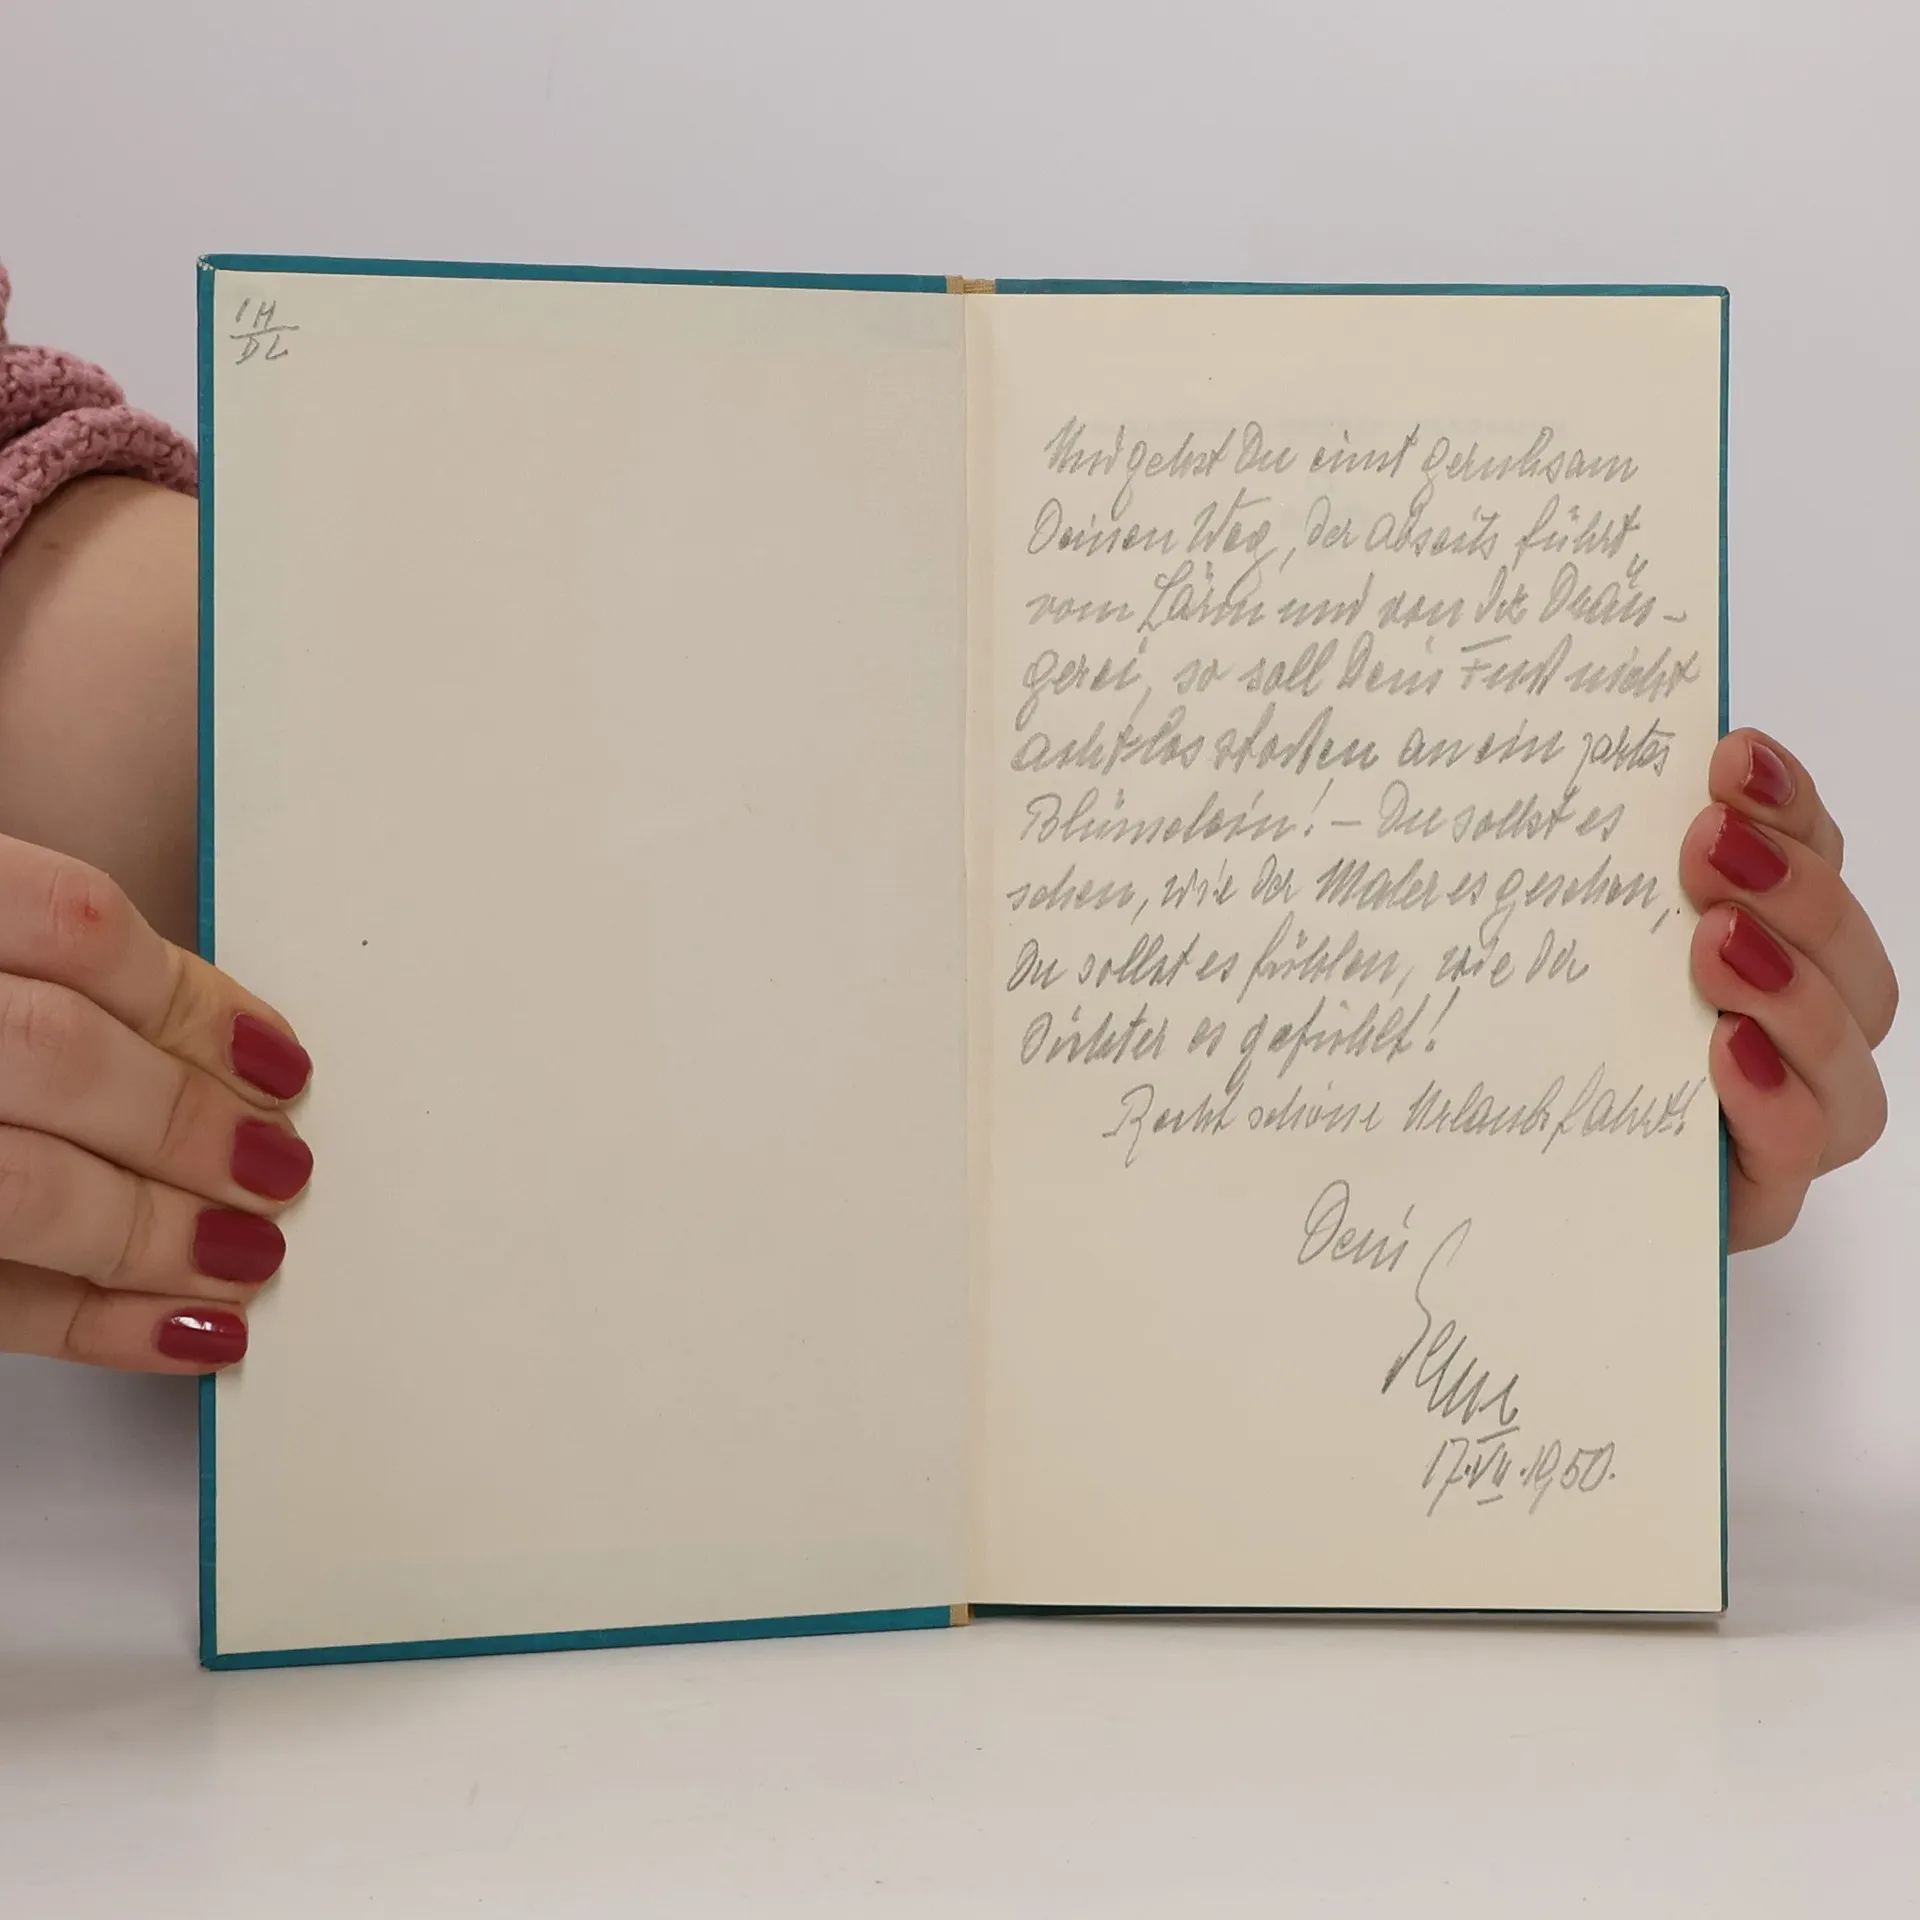 1H
DL
Und gehst Du einst geruhsam
Deinen Weg, der abseits führt,
vom Lärm und von der Drän-
gerei, so soll Dein Fuß nicht
achtlos stoßen an ein zartes
Blümelein! – Du sollst es
sehen, wie der Maler es gesehen,
Du sollst es fühlen, wie der
Dichter es gefühlt!
Recht schöne Urlaubsfahrt!
Dein
17.VII.1950.